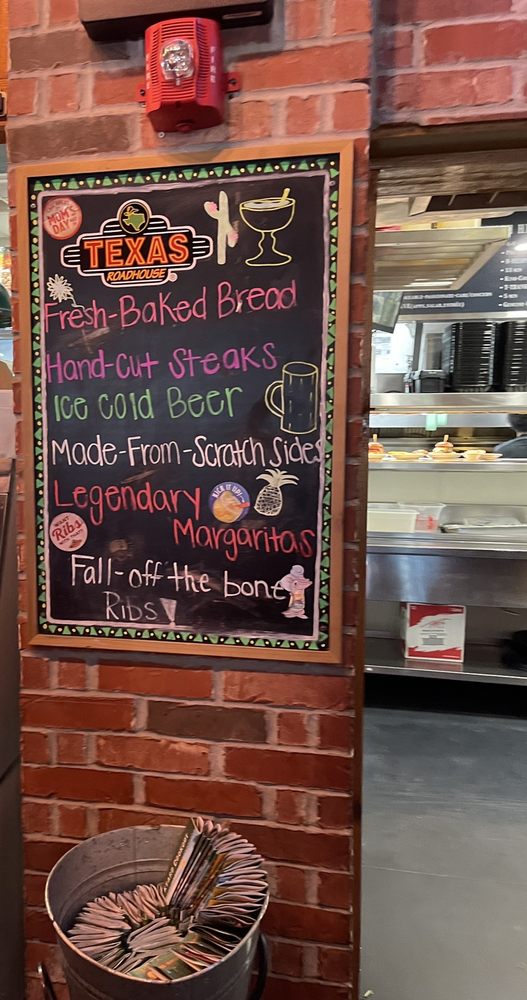 FIRE
MOM'S
DAY
TEXAS
ROADHOUSE
Fresh-Baked Bread
Hand-Cut Steaks
Ice Cold Beer
Made-From-Scratch Sides
Legendary
KICK IT UP!
Margaritas
WANT
Ribs
WITH THAT?
Fall-off the bone
Ribs!